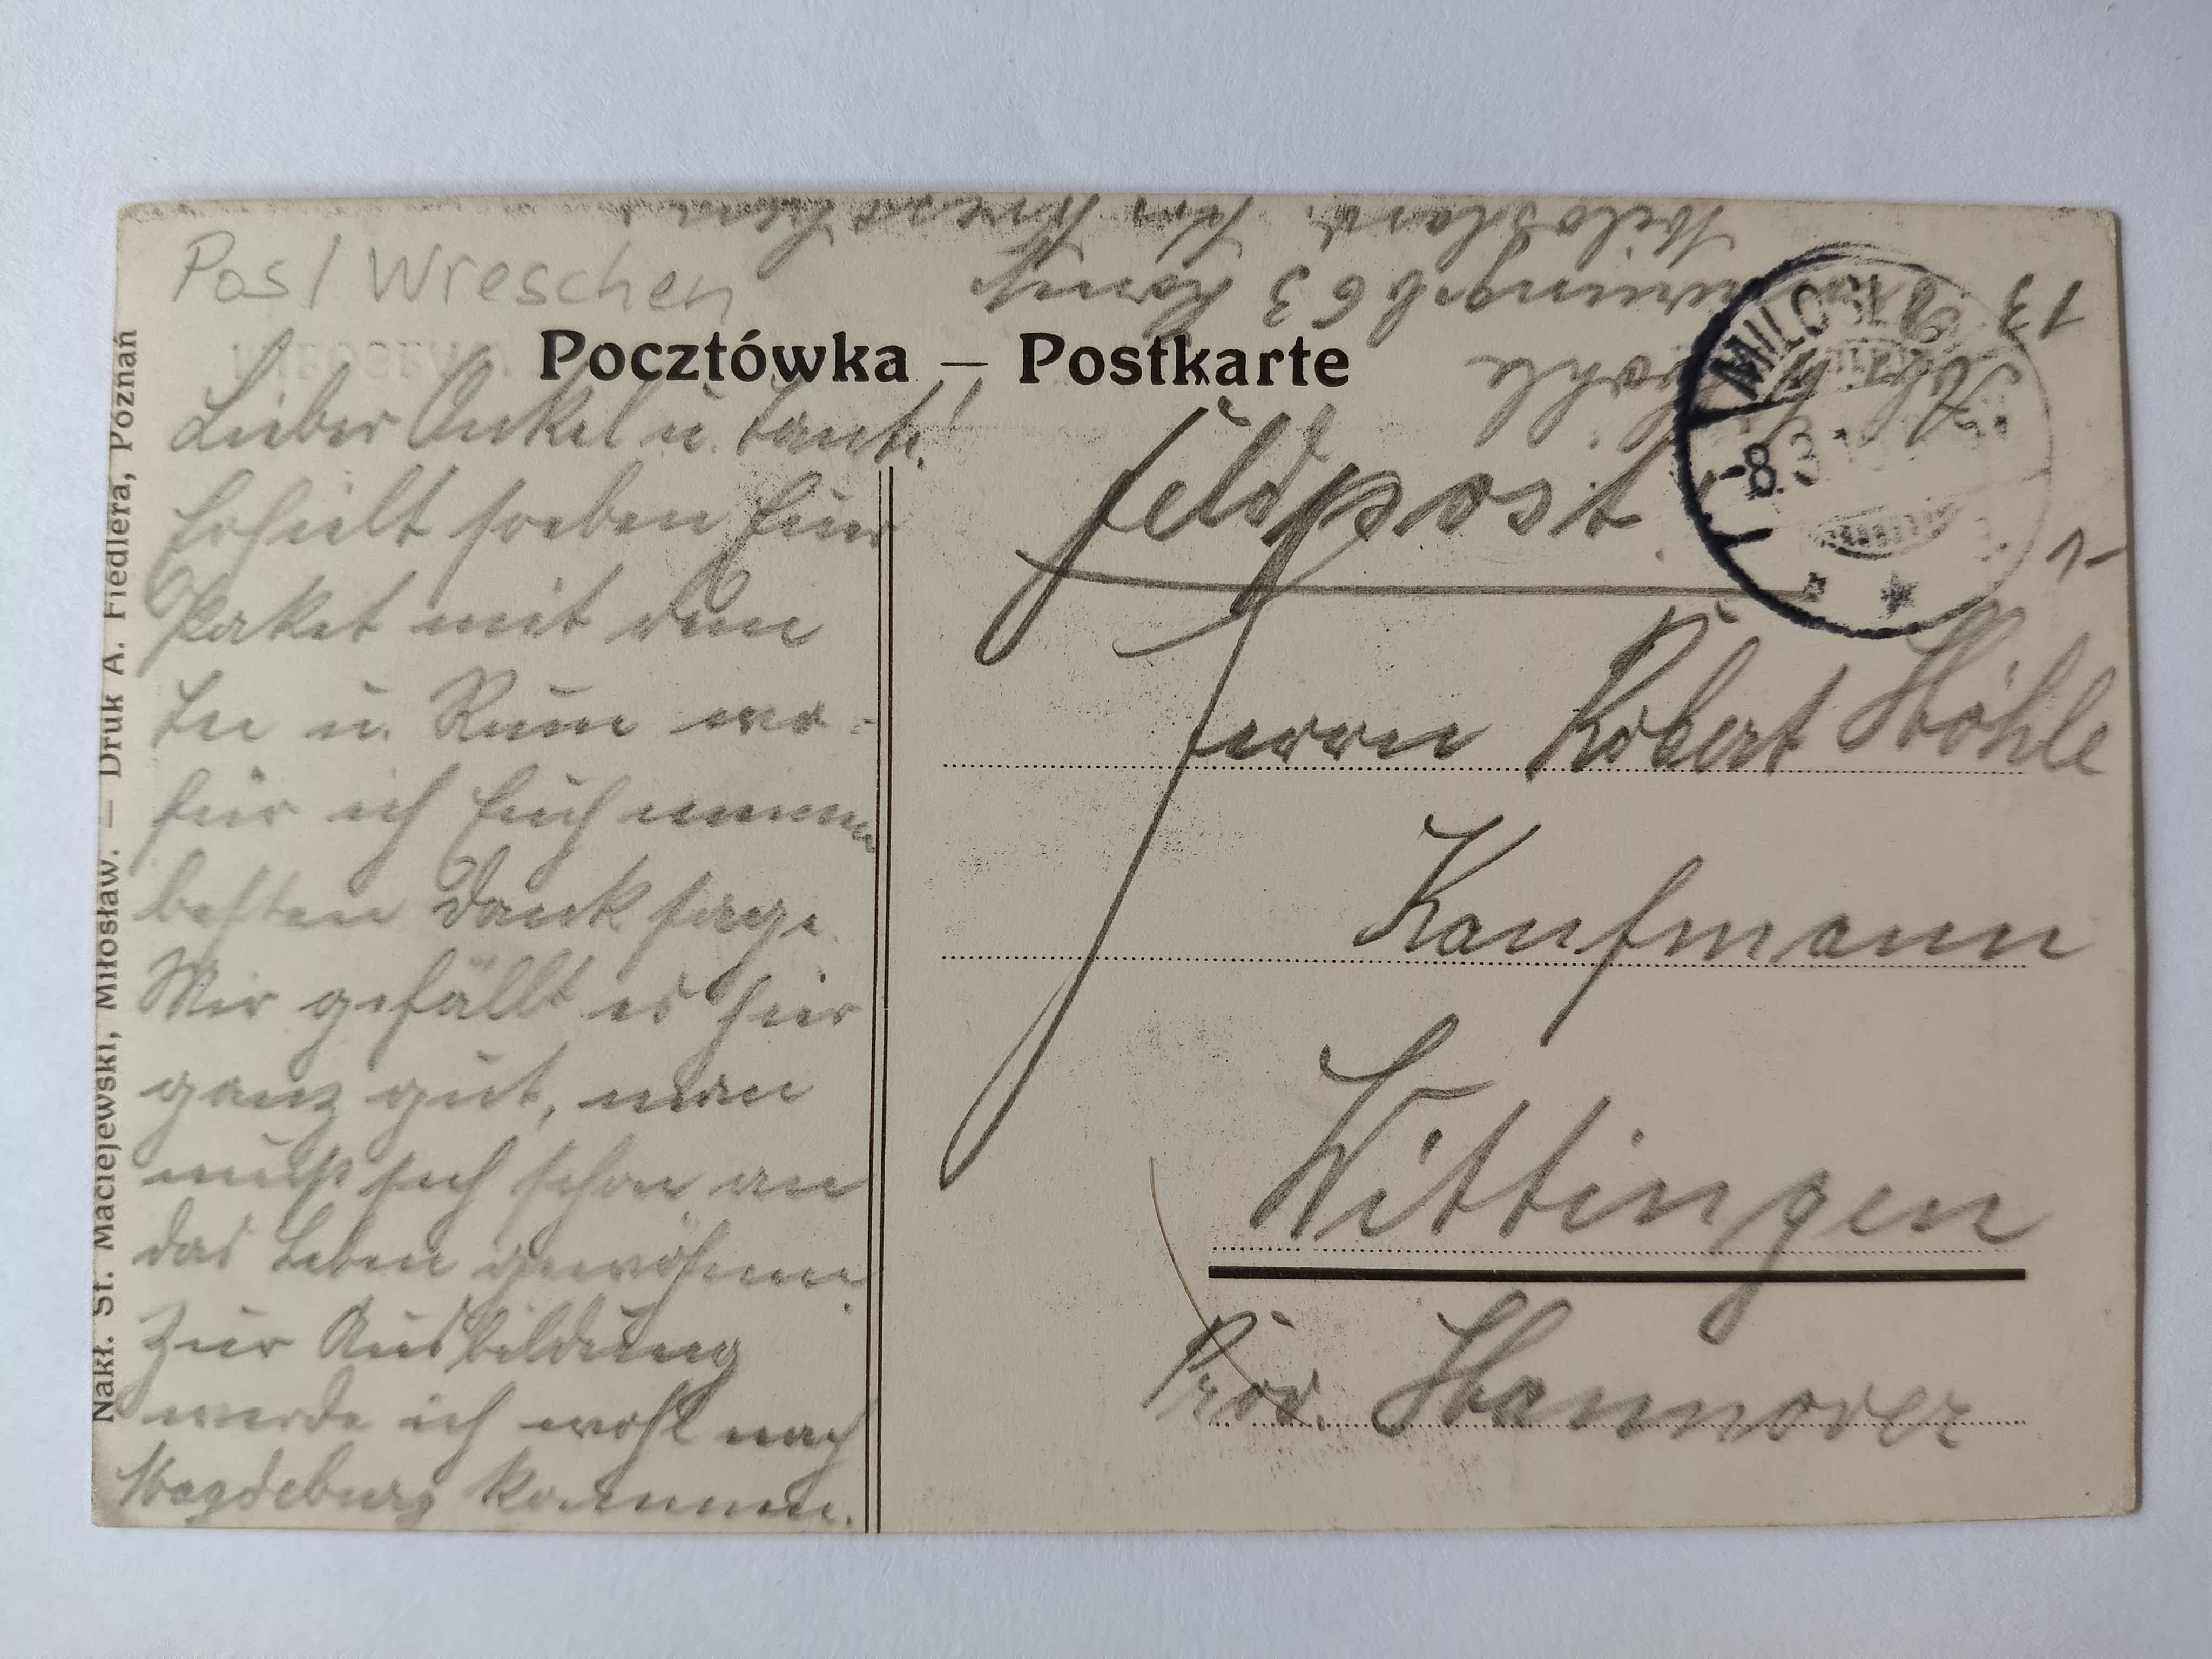 Pos / Wreschen
Pocztówka — Postkarte
Lieber Onkel u. Tante!
Erhielt soeben Euer
Paket mit dem
Tee u. Rum wo-
für ich Euch meinen
besten Dank sage.
Mir gefällt es hier
ganz gut, man
muß sich schon an
das Leben gewöhnen.
Zur Ausbildung
werde ich wohl nach
Magdeburg kommen.
Nakł. St. Maciejewski, Miłosław. — Druk A. Fiedlera, Poznań
Höhle
63 Komp.
Miloslaw. Krs. Wreschen
Feldpost.
MILOSL
8.3.1
Herrn Robert Höhle
Kaufmann
Wittingen
Prov. Hannover